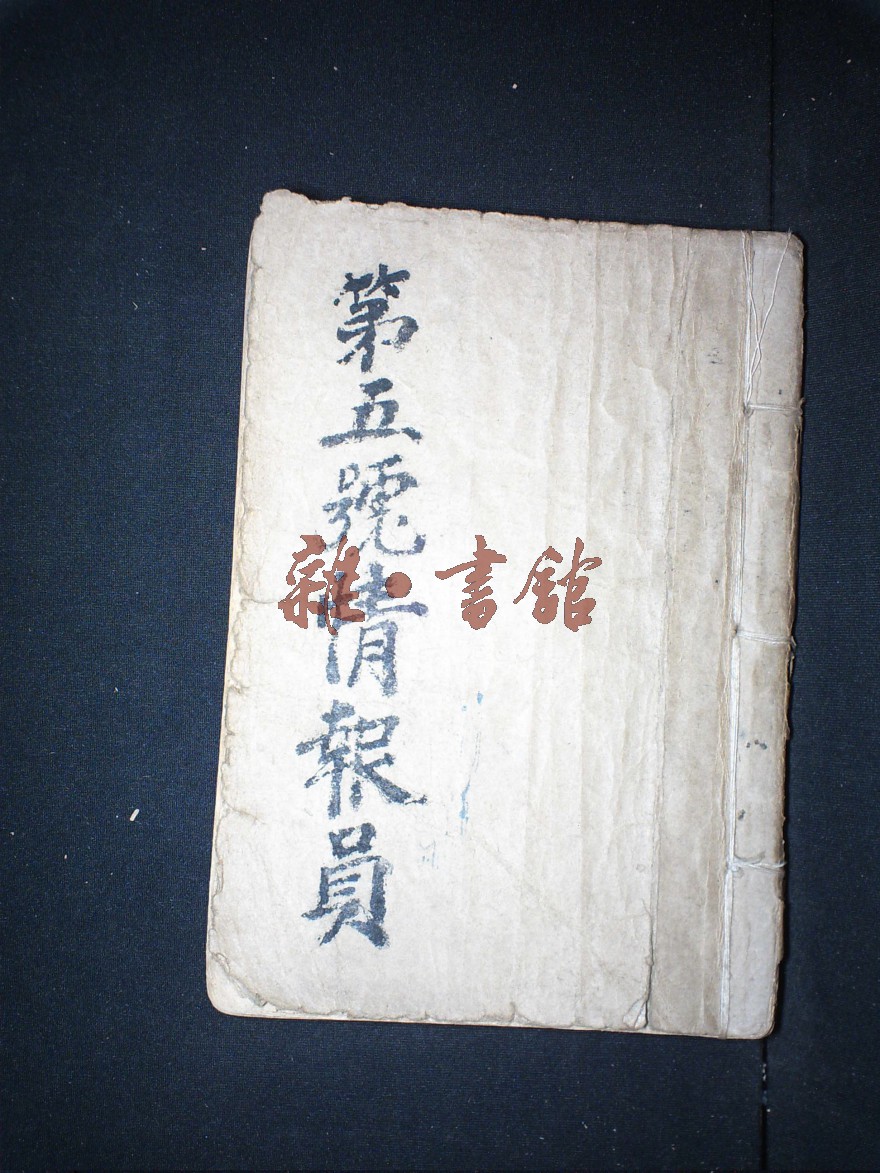 第五號情報員
雜·書館